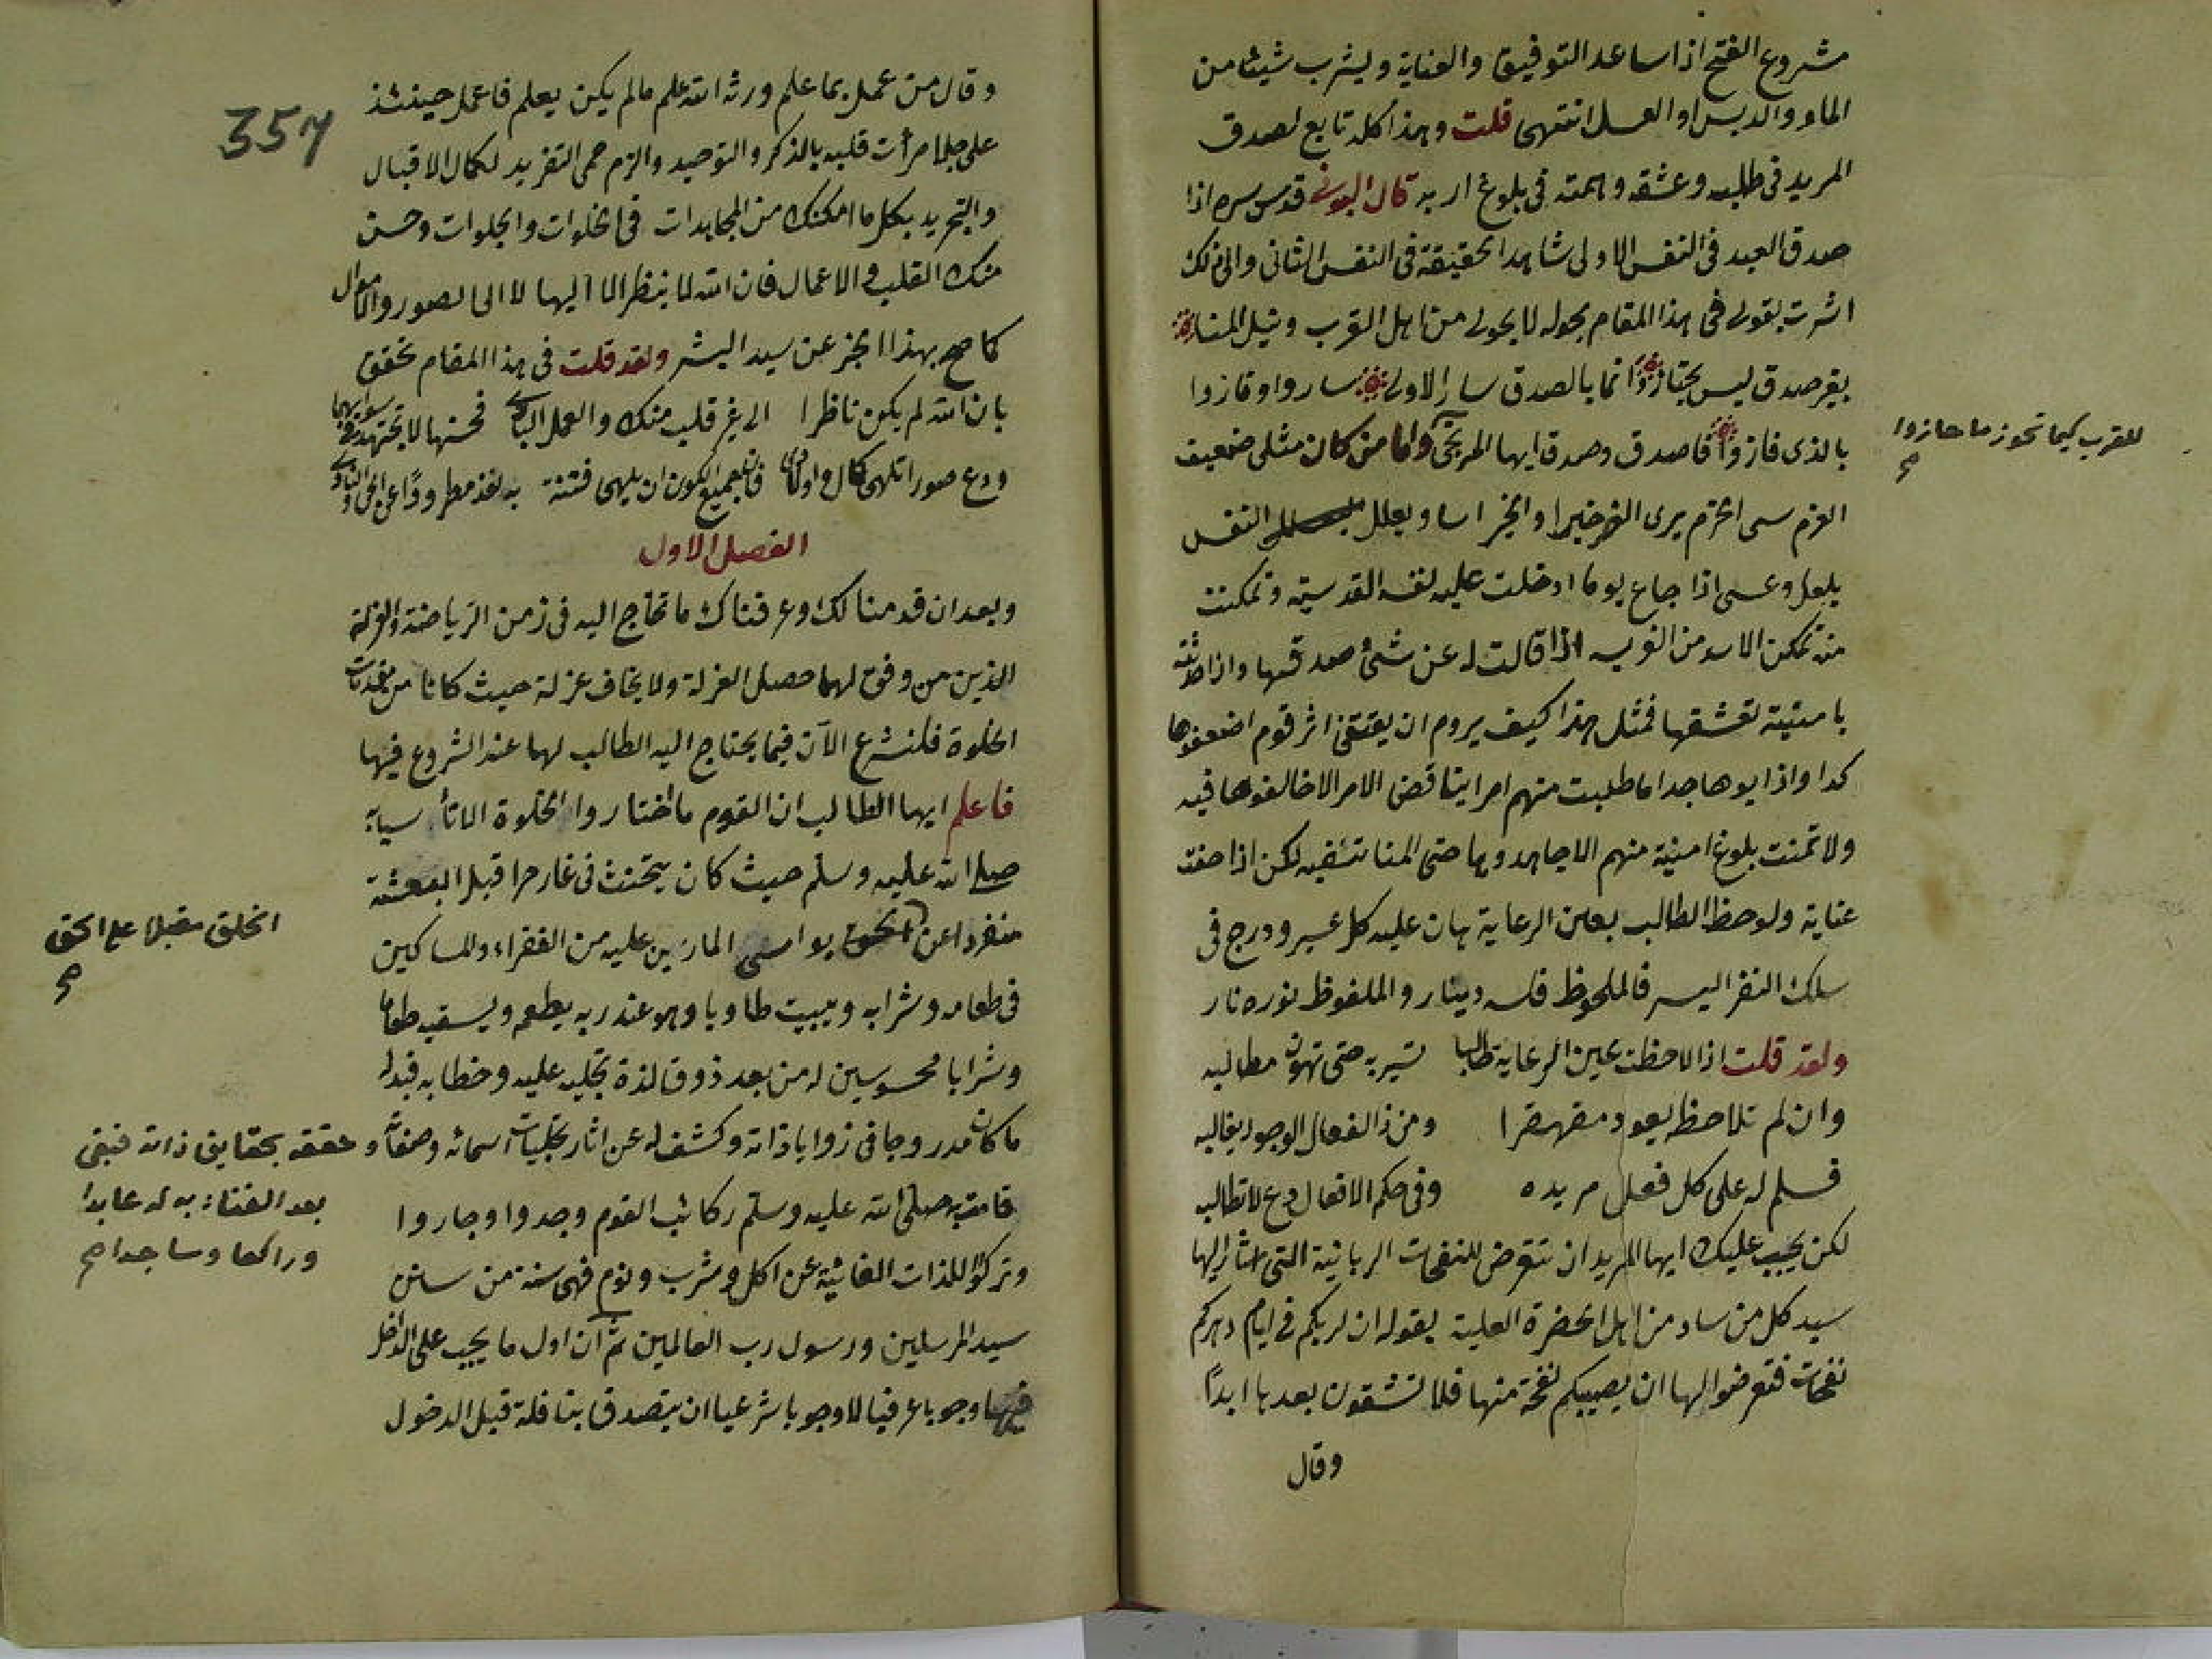 مشروع الفتح اذا ساعد التوفيق والعناية ويشرب شيئا من
الماء والدبس او العسل انتهى قلت وهذا كله تابع لصدق
المريد في طلبه وعشقه وهمته في بلوغ اربه قال البوني قدس سره اذا
صدق العبد في النفس الاولى شاهد الحقيقة في النفس الثاني والى ذلك
اشرت بقولي في هذا المقام بحوله لا بحولي من اهل القرب ونيل المنا
بغير صدق ليس يجتاز وانما بالصدق سار الاولى ساروا وفازوا
بالذي فازوا فاصدق وصدق ايها المرتجي واما من كان مثلي ضعيف
للقرب كيما تحوز ما حازوا صح
العزم سيئ الحزم يرى الضر خيرا والخبز اسا ويعلل النفس
بلعل وعسى اذا جاع يوما دخلت عليه نفسه القدسية وتمكنت
منه تمكن الاسد من الفريسه اذا قالت له عن شئ صدقها واذا حدثته
بامنية تعشقها فمثل هذا كيف يروم ان يقتفي اثر قوم اضعفوها
كدا واذابوها جدا ما طلبت منهم امرا يناقض الامر الا خالفوها فيه
ولا تمنت بلوغ امنية منهم الا جاهدوها حتى المنا تنفيه لكن اذا حفت
عناية ولوحظ الطالب بعين الرعاية هان عليه كل عسير ودرج في
سلك النفر اليسر فالملحوظ فلسه دينار والملفوظ نوره نار
ولقد قلت اذا لاحظت عين الرعاية طالبا تسير به حتى تهون مطالبه
وان لم تلاحظ يعود مقهقرا ومن ذا لفعال الوجود يغالبه
فسلم له على كل فعل مريده وفي حكم الافعال دع لا تطالبه
لكن يجب عليك ايها المريد ان تتعرض للنفحات الربانية التي اشار اليها
سيد كل من ساد من اهل الحضرة العلية بقوله ان لربكم في ايام دهركم
نفحات فتعرضوا لها ان يصيبكم نفحة منها فلا تشقون بعدها ابدًا
وقال
357
وقال من عمل بما علم ورثه الله علم ما لم يكن يعلم فاعمل حينئذ
على جلا مرأت قلبه بالذكر والتوحيد والزم حمى التفريد لكمال الاقبال
والتجريد بكل ما امكنك من المجاهدات في الخلوات والجلوات وحسن
منك القلب والاعمال فان الله لا ينظر الا اليها لا الى الصور والاموال
كما صح بهذا الخبر عن سيد البشر ولقد قلت في هذا المقام تحقق
بان الله لم يكن ناظرا الى غير قلب منك والعمل البادي فحسنها لا تجتهد في سواهما
ودع صورا تلهي كمال واولاد فان جميع الكون ان يلهي فتنة به لغد مطرودًا عن الحي والنادي
الفصل الاول
وبعد ان قدمنا لك وعرفناك ما تحتاج اليه في زمن الرياضة والعزلة
الذين من وفق لهما حصل العزلة ولا يخاف عزلة حيث كانا من مقدمات
الخلوة فلنشرع الآن فيما يحتاج اليه الطالب لها عند الشروع فيها
فاعلم ايها الطالب ان القوم ما اختاروا الخلوة الا تأسيا به
صلى الله عليه وسلم حيث كان يتحنث في غار حرا قبل البعثة
منفردا عن الخلق مقبلا على الحق صح يواسي المارين عليه من الفقراء والمساكين
في طعامه وشرابه ويبيت طاويا وهو عند ربه يطعم ويسقيه طعاما
وشرابا محسوسين له من بعد ذوق لذة تجليه عليه وخطابه فبدا
ما كان مدروجا في زوايا ذاته وكشف له عن اثار تجليات اسمائه وصفاته وحققه بحقايق ذاته فبقي
بعد الفناء به له عابدا
وراكعا وساجدا صح
فامته صلى الله عليه وسلم ركائب القوم وجدوا وجاروا
وتركوا اللذات الفانية عن اكل وشرب ونوم فهي سنة من سنن
سيد المرسلين ورسول رب العالمين ثم ان اول ما يجب على الداخل
فيها وجوبا عرفيا لا وجوبا شرعيا ان يتصدق بنافلة قبل الدخول